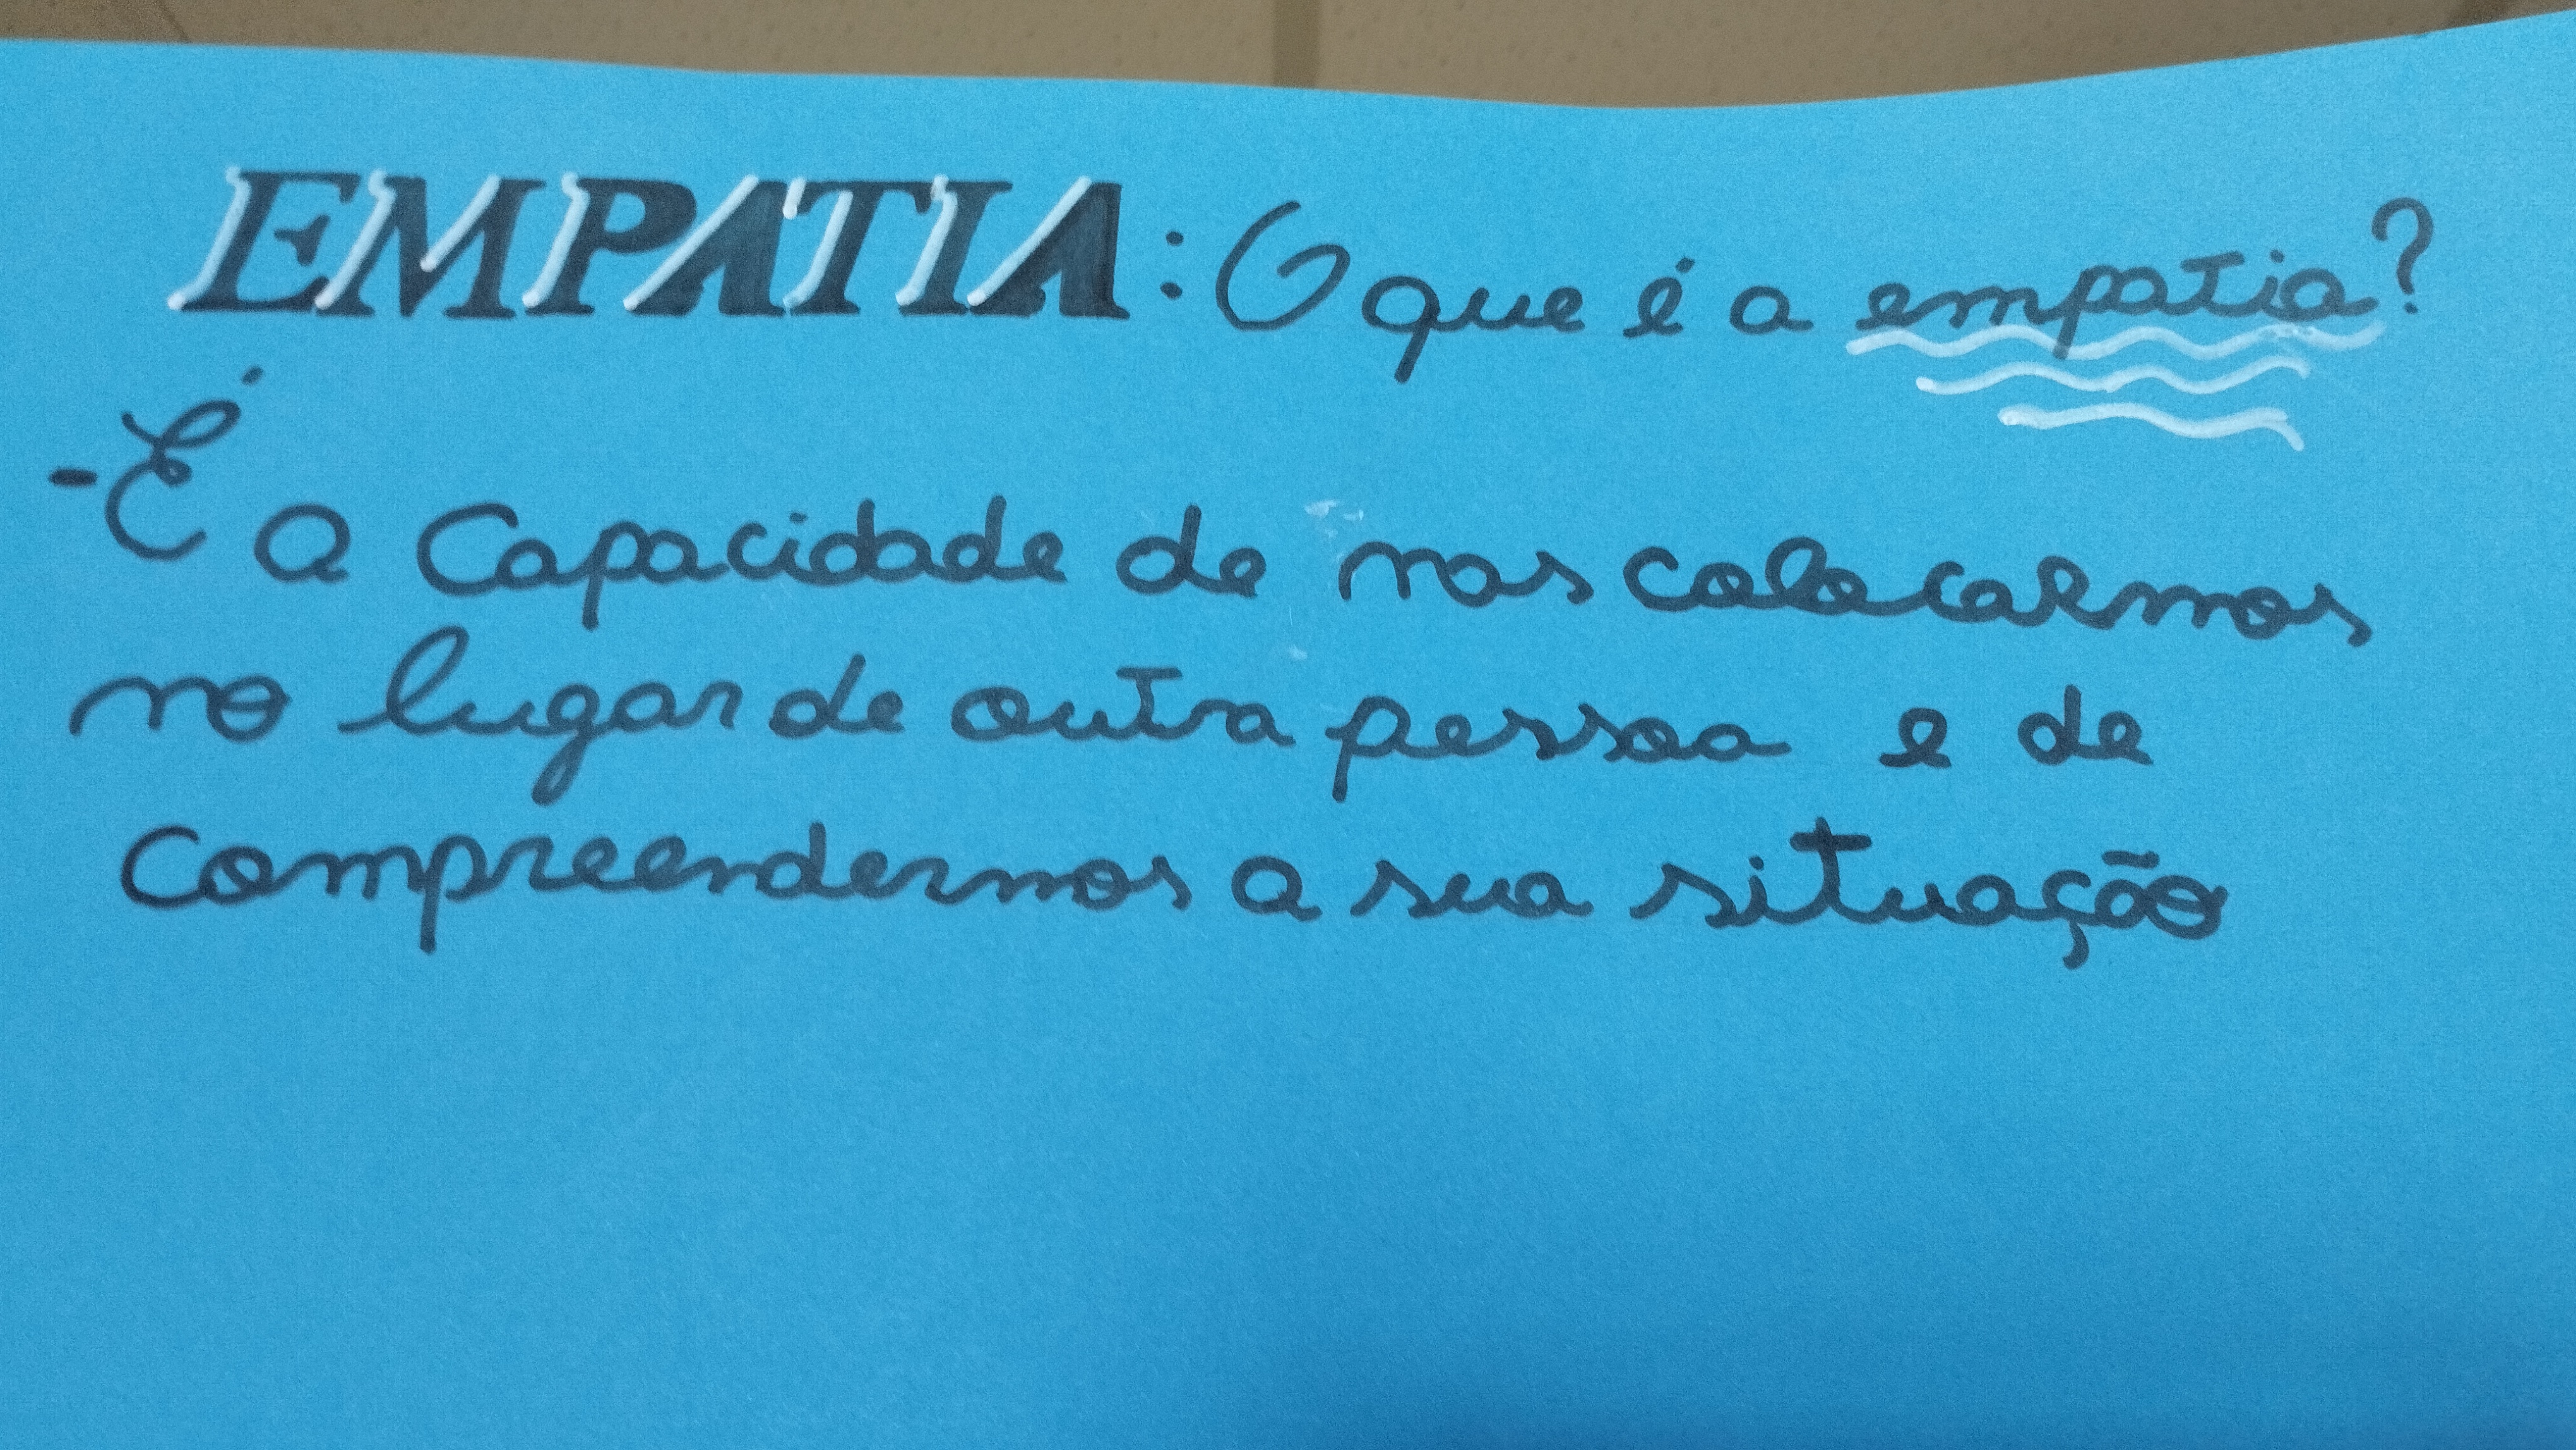 EMPATIA: O que é a empatia?
- É a Capacidade de nos colocarmos
no lugar de outra pessoa e de
Compreendermos a sua situação